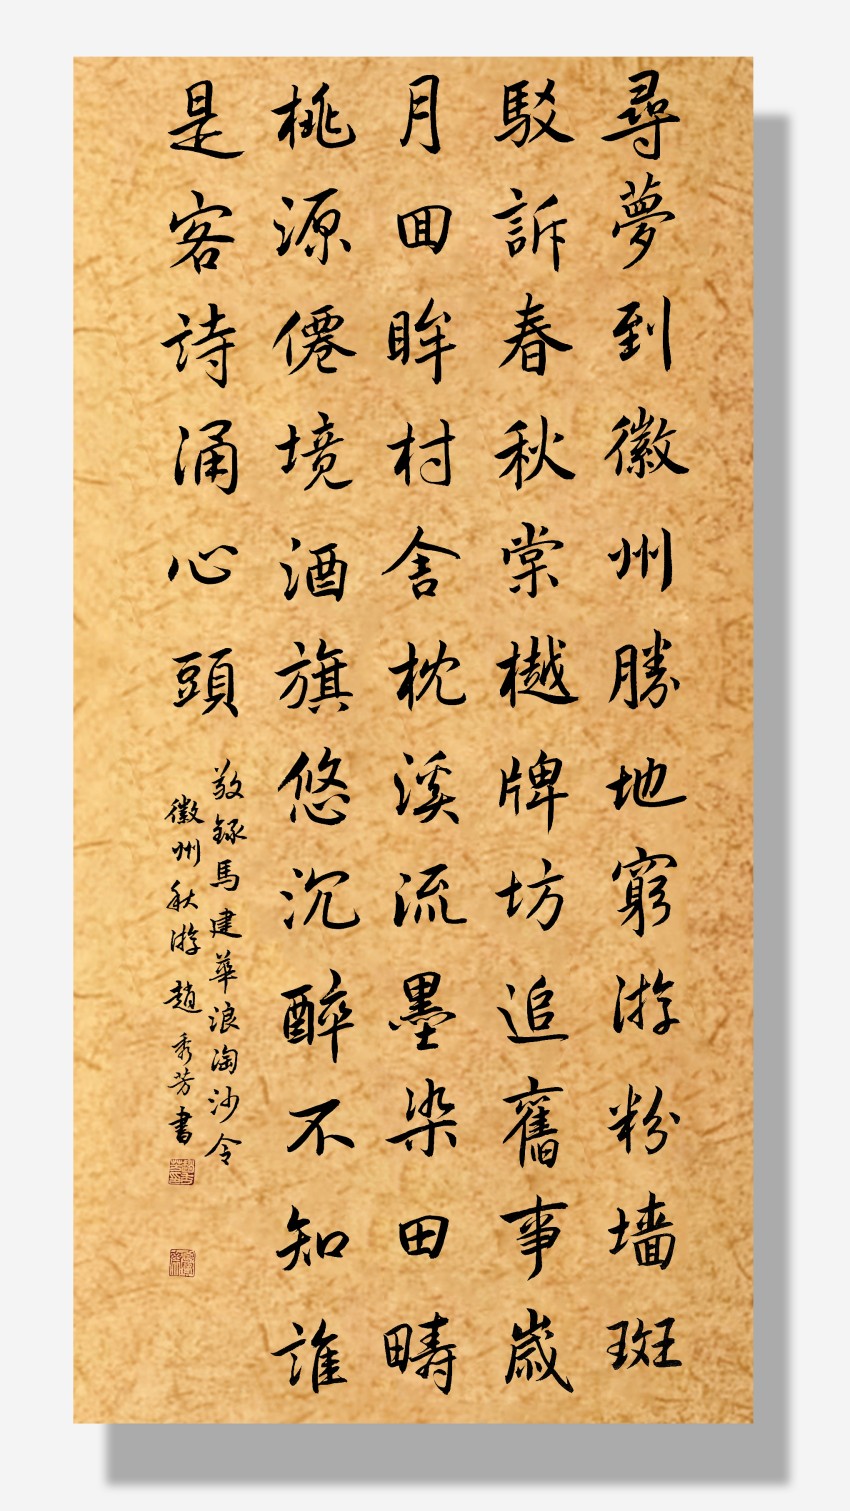 尋夢到徽州勝地窮游粉墙斑
駁訴春秋棠樾牌坊追舊事歲
月回眸村舍枕溪流墨染田疇
桃源僊境酒旗悠沉醉不知誰
是客詩涌心頭
敬錄馬建華浪淘沙令
徽州秋游趙秀芳書